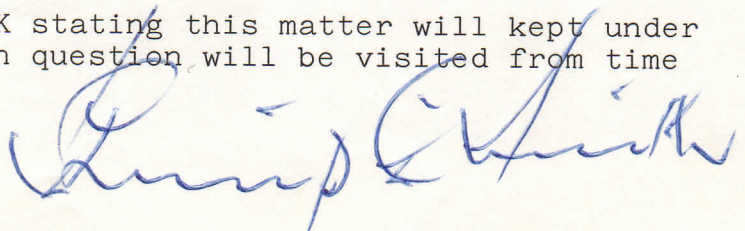 K stating this matter will kept under
n question will be visited from time